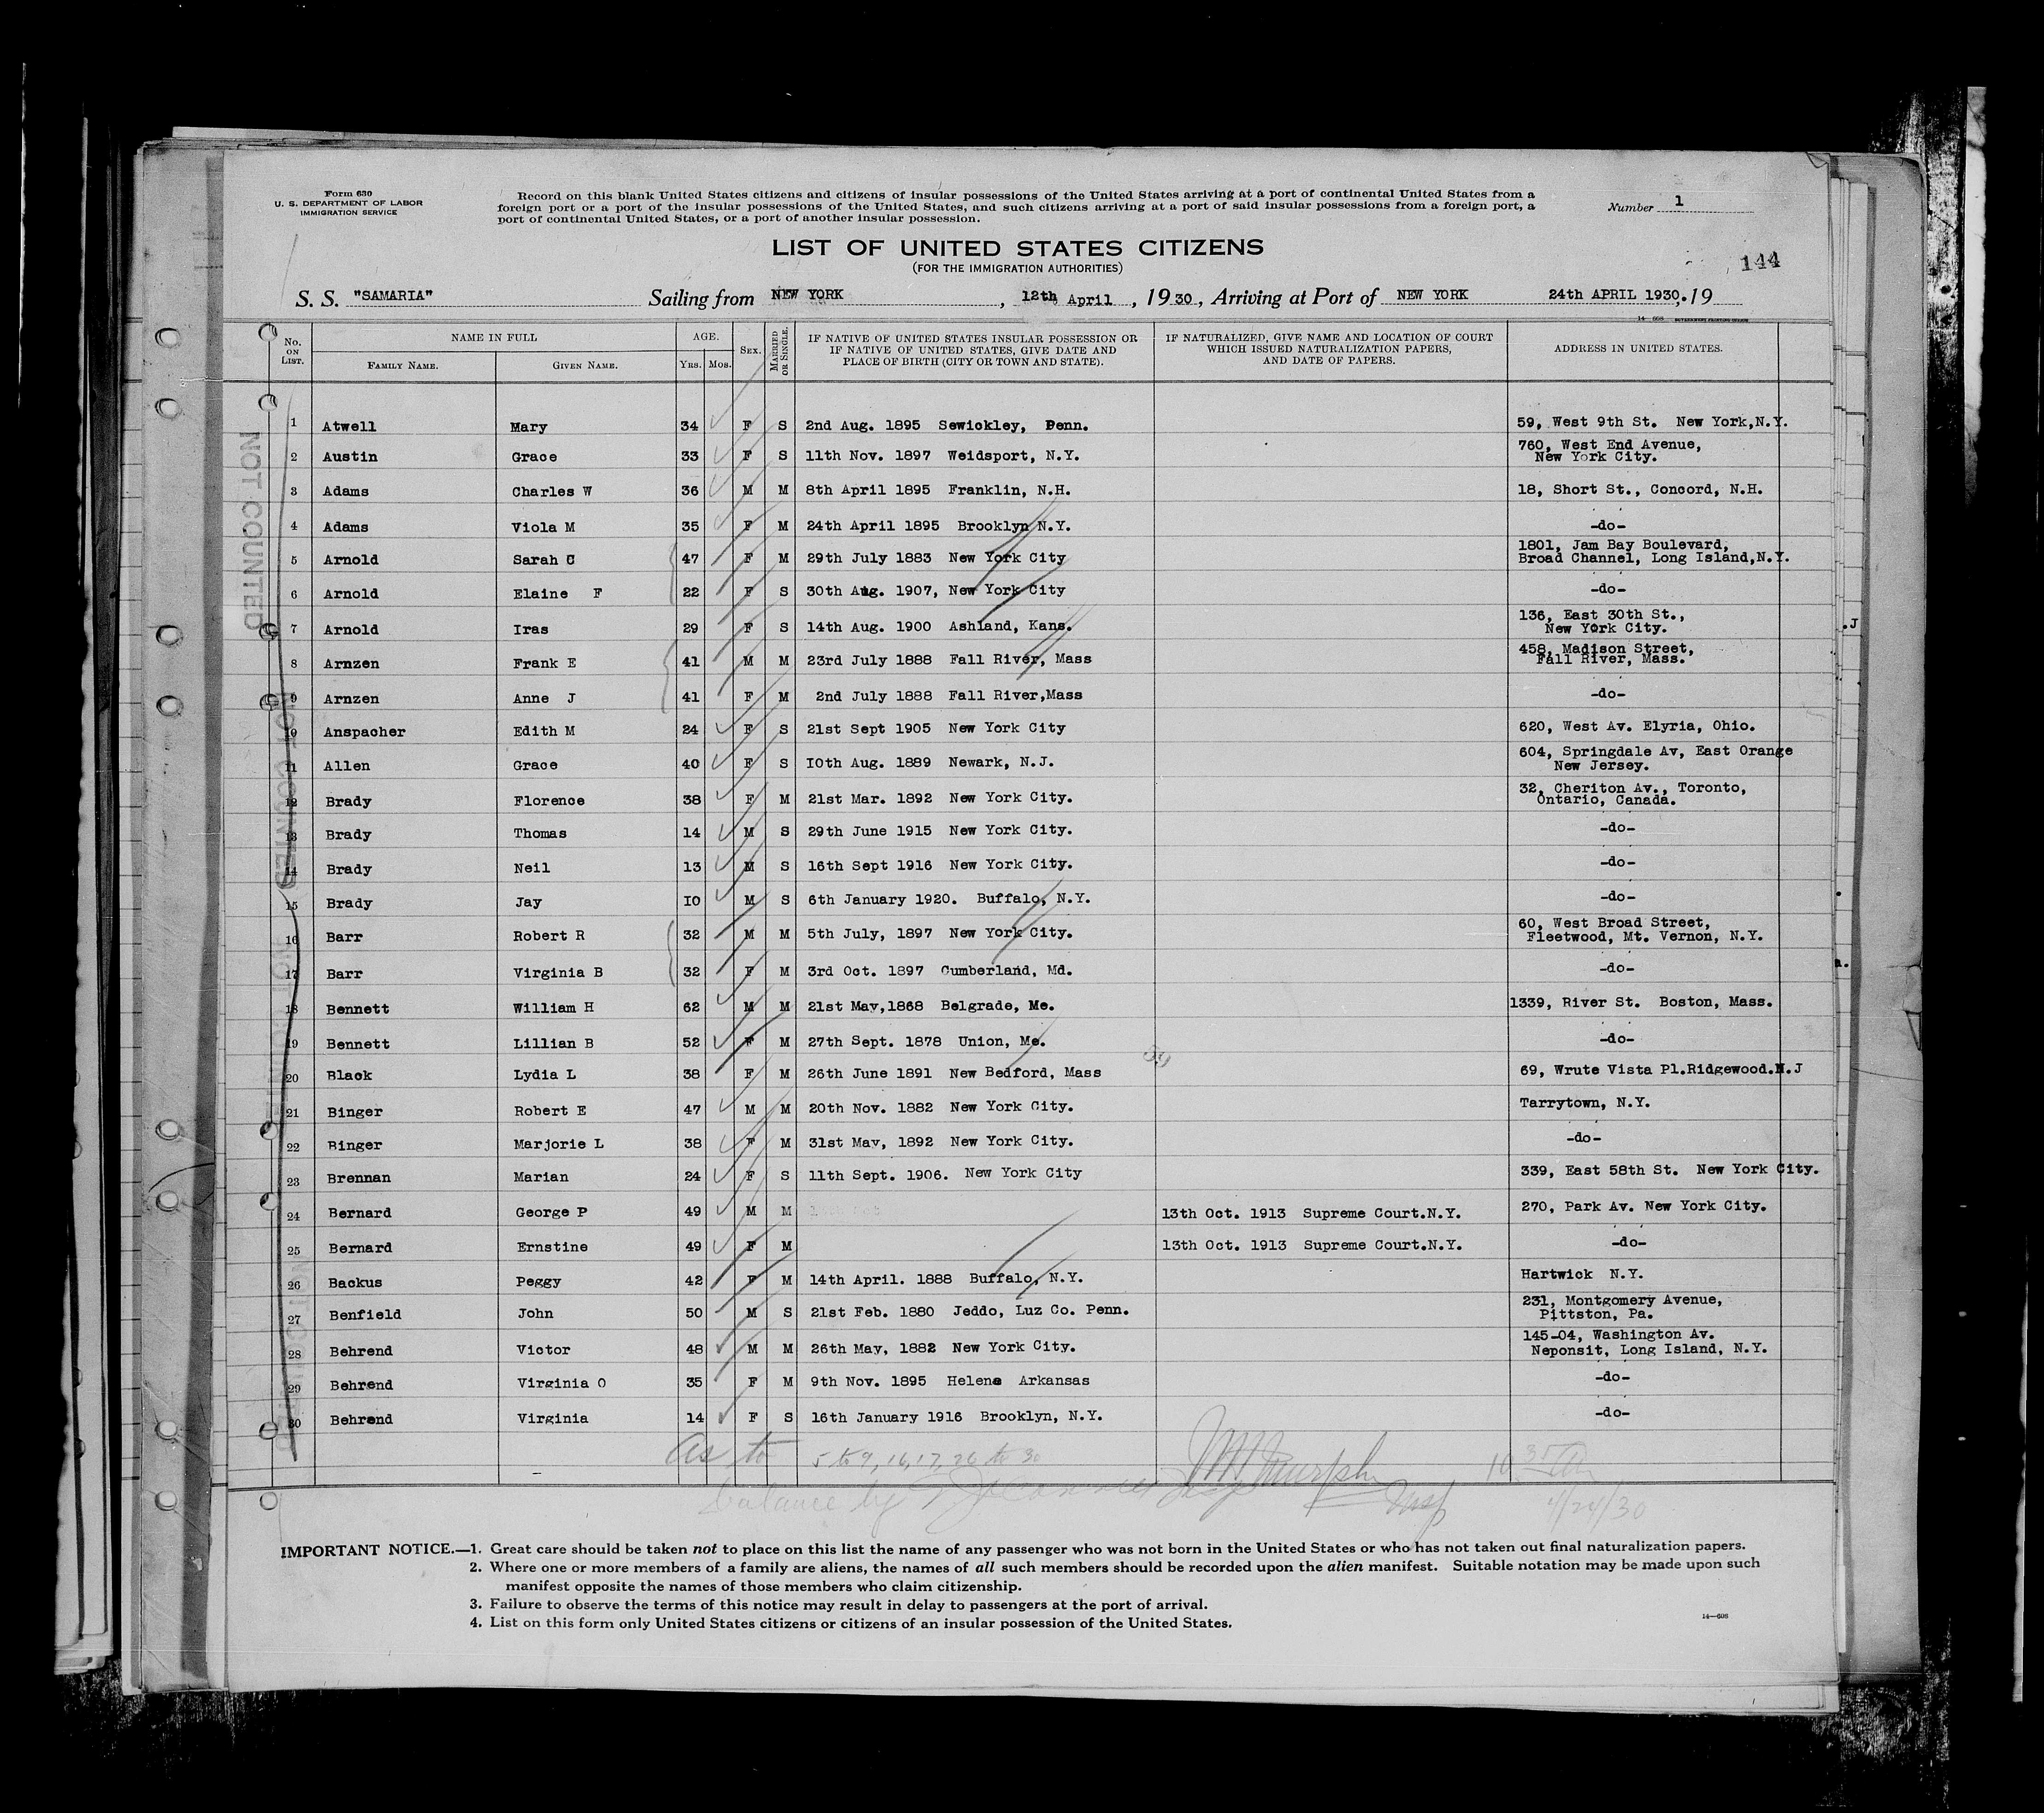 Form 630
U. S. DEPARTMENT OF LABOR
IMMIGRATION SERVICE
Record on this blank United States citizens and citizens of insular possessions of the United States arriving at a port of continental United States from a
foreign port or a port of the insular possessions of the United States, and such citizens arriving at a port of said insular possessions from a foreign port, a
port of continental United States, or a port of another insular possession.
Number 1
LIST OF UNITED STATES CITIZENS
(FOR THE IMMIGRATION AUTHORITIES)
144
S. S. "SAMARIA" Sailing from NEW YORK, 12th April, 1930, Arriving at Port of NEW YORK 24th APRIL 1930.19
14-608 GOVERNMENT PRINTING OFFICE
No. ON LIST. NAME IN FULL AGE. SEX. MARRIED OR SINGLE. IF NATIVE OF UNITED STATES INSULAR POSSESSION OR IF NATIVE OF UNITED STATES, GIVE DATE AND PLACE OF BIRTH (CITY OR TOWN AND STATE). IF NATURALIZED, GIVE NAME AND LOCATION OF COURT WHICH ISSUED NATURALIZATION PAPERS, AND DATE OF PAPERS. ADDRESS IN UNITED STATES.
FAMILY NAME. GIVEN NAME. YRS. MOS.
1 Atwell Mary 34 F S 2nd Aug. 1895 Sewickley, Penn. 59, West 9th St. New York,N.Y.
2 Austin Grace 33 F S 11th Nov. 1897 Weidsport, N.Y. 760, West End Avenue,
New York City.
3 Adams Charles W 36 M M 8th April 1895 Franklin, N.H. 18, Short St., Concord, N.H.
4 Adams Viola M 35 F M 24th April 1895 Brooklyn N.Y. -do-
5 Arnold Sarah C 47 F M 29th July 1883 New York City 1801, Jam Bay Boulevard,
Broad Channel, Long Island,N.Y.
6 Arnold Elaine F 22 F S 30th Aug. 1907, New York City -do-
7 Arnold Iras 29 F S 14th Aug. 1900 Ashland, Kans. 136, East 30th St.,
New York City.
8 Arnzen Frank E 41 M M 23rd July 1888 Fall River, Mass 458, Madison Street,
Fall River, Mass.
9 Arnzen Anne J 41 F M 2nd July 1888 Fall River,Mass -do-
10 Anspacher Edith M 24 F S 21st Sept 1905 New York City 620, West Av. Elyria, Ohio.
11 Allen Grace 40 F S 10th Aug. 1889 Newark, N.J. 604, Springdale Av, East Orange
New Jersey.
12 Brady Florence 38 F M 21st Mar. 1892 New York City. 32, Cheriton Av., Toronto,
Ontario, Canada.
13 Brady Thomas 14 M S 29th June 1915 New York City. -do-
14 Brady Neil 13 M S 16th Sept 1916 New York City. -do-
15 Brady Jay 10 M S 6th January 1920. Buffalo, N.Y. -do-
16 Barr Robert R 32 M M 5th July, 1897 New York City. 60, West Broad Street,
Fleetwood, Mt. Vernon, N.Y.
17 Barr Virginia B 32 F M 3rd Oct. 1897 Cumberland, Md. -do-
18 Bennett William H 62 M M 21st May,1868 Belgrade, Me. 1339, River St. Boston, Mass.
19 Bennett Lillian B 52 F M 27th Sept. 1878 Union, Me. -do-
20 Black Lydia L 38 F M 26th June 1891 New Bedford, Mass 69, Wrute Vista Pl.Ridgewood.N.J
21 Binger Robert E 47 M M 20th Nov. 1882 New York City. Tarrytown, N.Y.
22 Binger Marjorie L 38 F M 31st May, 1892 New York City. -do-
23 Brennan Marian 24 F S 11th Sept. 1906. New York City 339, East 58th St. New York City.
24 Bernard George P 49 M M 13th Oct. 1913 Supreme Court.N.Y. 270, Park Av. New York City.
25 Bernard Ernstine 49 F M 13th Oct. 1913 Supreme Court.N.Y. -do-
26 Backus Peggy 42 F M 14th April. 1888 Buffalo, N.Y. Hartwick N.Y.
27 Benfield John 50 M S 21st Feb. 1880 Jeddo, Luz Co. Penn. 231, Montgomery Avenue,
Pittston, Pa.
28 Behrend Victor 48 M M 26th May, 1882 New York City. 145-04, Washington Av.
Neponsit, Long Island, N.Y.
29 Behrend Virginia O 35 F M 9th Nov. 1895 Helena Arkansas -do-
30 Behrend Virginia 14 F S 16th January 1916 Brooklyn, N.Y. -do-
As to 5 to 9, 16, 17, 26 to 30 Murphy 10 35 AM
balance by Insp 4/24/30
NOT COUNTED
NOT COUNTED
IMPORTANT NOTICE.—1. Great care should be taken not to place on this list the name of any passenger who was not born in the United States or who has not taken out final naturalization papers.
2. Where one or more members of a family are aliens, the names of all such members should be recorded upon the alien manifest. Suitable notation may be made upon such
manifest opposite the names of those members who claim citizenship.
3. Failure to observe the terms of this notice may result in delay to passengers at the port of arrival.
4. List on this form only United States citizens or citizens of an insular possession of the United States.
14—608